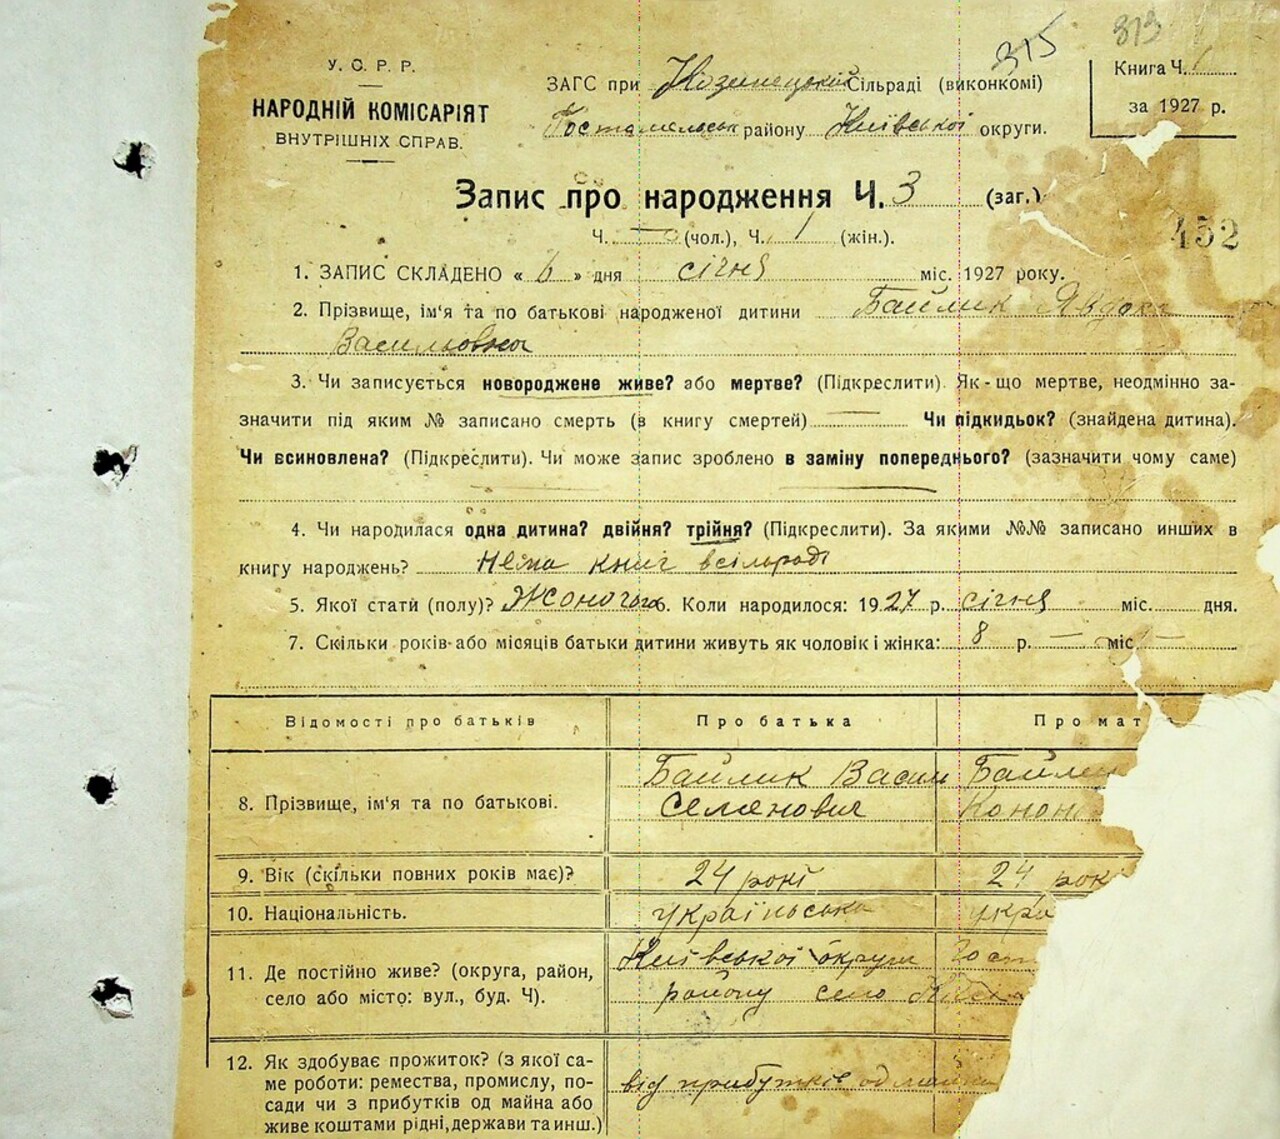 315 313
У. С. Р. Р.
НАРОДНІЙ КОМІСАРІЯТ
ВНУТРІШНІХ СПРАВ.
ЗАГС при Сільраді (виконкомі)
Гостомельськ району Київської округи.
Книга Ч. 1
за 1927 р.
Запис про народження Ч. 3 (заг.)
Ч. — (чол.), Ч. 1 (жін.).
452
1. ЗАПИС СКЛАДЕНО « 6 » дня січня міс. 1927 року.
2. Прізвище, ім'я та по батькові народженої дитини Байлик Явдока
Васильовна
3. Чи записується новороджене живе? або мертве? (Підкреслити). Як-що мертве, неодмінно за-
значити під яким № записано смерть (в книгу смертей) — Чи підкидьок? (знайдена дитина).
Чи всиновлена? (Підкреслити). Чи може запис зроблено в заміну попереднього? (зазначити чому саме)
4. Чи народилася одна дитина? двійня? трійня? (Підкреслити). За якими №№ записано инших в
книгу народжень? Нема книг всільраді
5. Якої стати (полу)? Жоночого 6. Коли народилося: 1927 р. січня міс. дня.
7. Скільки років або місяців батьки дитини живуть як чоловік і жінка: 8 р. — міс. —
Відомості про батьків Про батька Про мат
8. Прізвище, ім'я та по батькові. Байлик Васил Байли
Семенович Конон
9. Вік (скільки повних років має)? 24 рокі 24 рок
10. Національність. українська укра
11. Де постійно живе? (округа, район,
село або місто: вул., буд. Ч).
Київської округи Гост
району село
12. Як здобуває прожиток? (з якої са-
ме роботи: ремества, промислу, по-
сади чи з прибутків од майна або
живе коштами рідні, держави та инш.)
від прибутків од майна